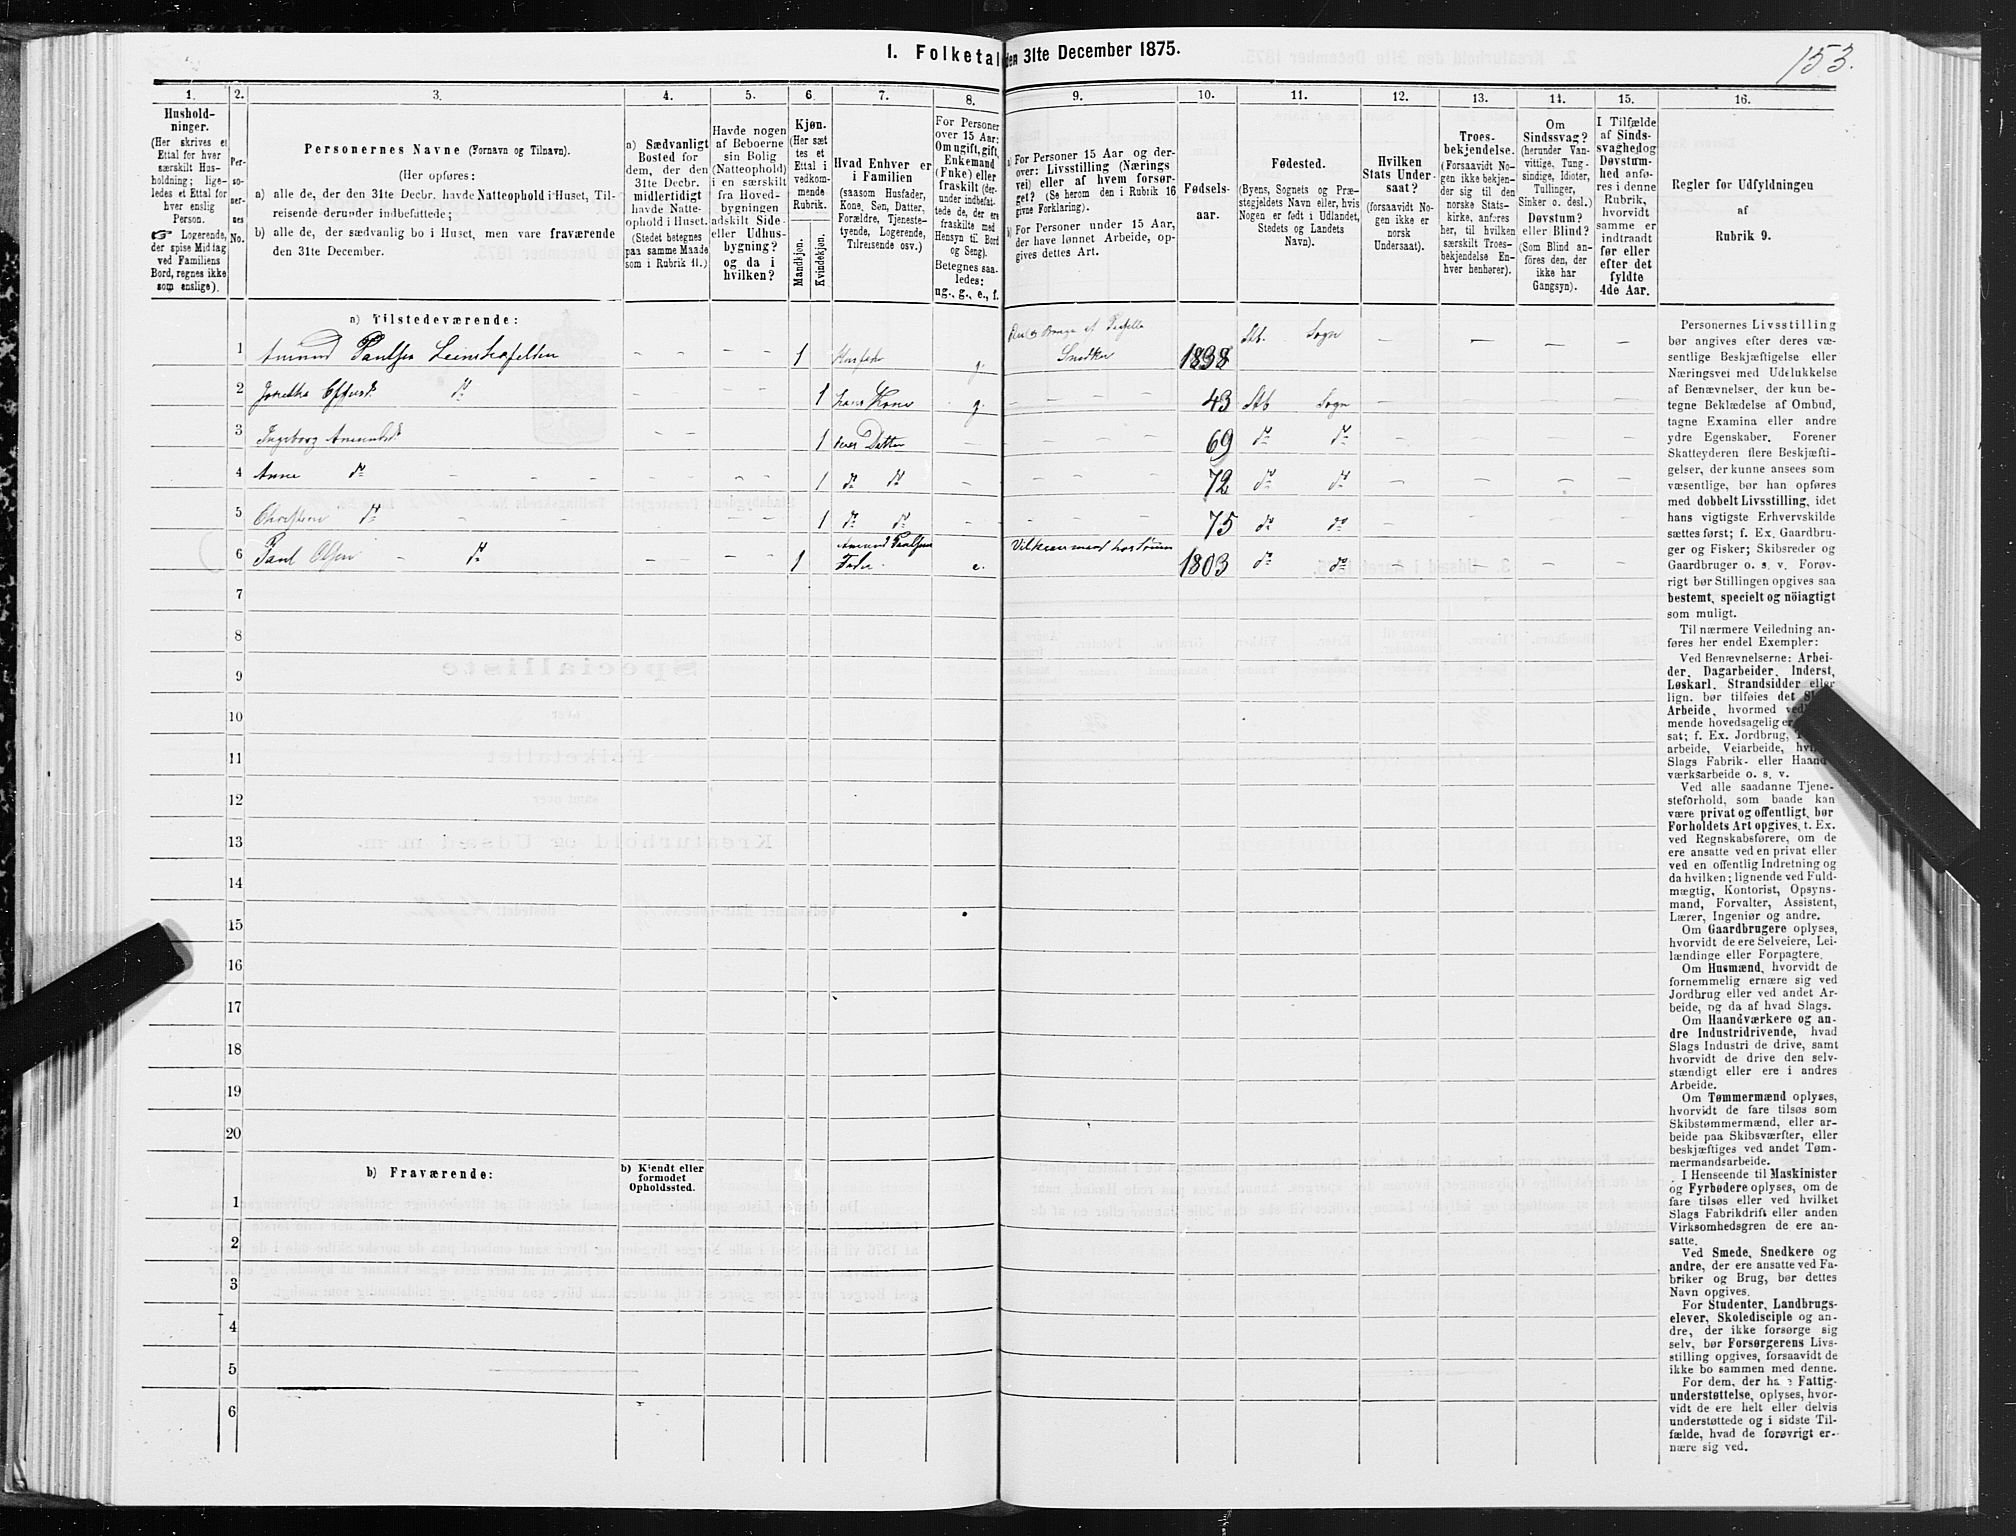 I. Folketal
den 31te December 1875.
153.
1.
2.
3.
4.
5.
6.
7.
8.
9.
10.
11.
12.
13.
14.
15.
16.
Hushold-
ninger.
(Her skrives et
Ettal for hver
særskilt Hus-
holdning; lige-
ledes et Ettal for
hver enslig
Person.
☞ Logerende,
der spise Middag
ved Familiens
Bord, regnes ikke
som enslige).
Per-
so-
ner-
nes
No.
Personernes Navne (Fornavn og Tilnavn).
(Her opføres:
a) alle de, der den 31te Decbr. havde Natteophold i Huset, Til-
reisende derunder indbefattede;
b) alle de, der sædvanlig bo i Huset, men vare fraværende
den 31te December.
a) Sædvanligt
Bosted for
dem, der den
31te Decbr.
midlertidigt
havde Natte-
ophold i Huset.
(Stedet betegnes
paa samme Maade
som i Rubrik 11.)
Havde nogen
af Beboerne
sin Bolig
(Natteophold)
i en særskilt
fra Hoved-
bygningen
adskilt Side-
eller Udhus-
bygning?
og da i
hvilken?
Kjøn.
(Her sæt
tes et
Ettal i
vedkom-
mende
Rubrik.
Mandkjøn.
Kvindekjøn.
Hvad Enhver er
i Familien
(saasom Husfader,
Kone, Søn, Datter,
Forældre, Tjeneste-
tyende, Logerende,
Tilreisende osv.)
For Personer
over 15 Aar:
Om ugift, gift,
Enkemand
(Enke) eller
fraskilt (der-
under indbefat-
tede de, der ere
fraskilte med
Hensyn til Bord
og Seng).
Betegnes saa-
ledes:
ug., g., e., f.
a) For Personer 15 Aar og der-
over: Livsstilling (Nærings
vei) eller af hvem forsør-
get? (Se herom den i Rubrik 16
givne Forklaring).
b) For Personer under 15 Aar,
der have lønnet Arbeide, op-
gives dettes Art.
Fødsels-
aar.
Fødested.
(Byens, Sognets og Præ-
stegjeldets Navn eller, hvis
Nogen er født i Udlandet,
Stedets og Landets
Navn).
Hvilken
Stats Under-
saat?
(forsaavidt No-
gen ikke er
norsk
Undersaat).
Troes-
bekjendelse.
(Forsaavidt No-
gen ikke bekjen-
der sig til den
norske Stats-
kirke, anføres
her, til hvilken
særskilt Troes-
bekjendelse En-
hver henhører).
Om
Sindssvag?
(herunder Van-
vittige, Tung-
sindige, Idioter,
Tullinger,
Sinker o. desl.)
Døvstum?
eller Blind?
(Som Blind an-
føres den, der
ikke har
Gangsyn).
I Tilfælde
af Sinds-
svaghed og
Døvstum-
hed anfø-
res i denne
Rubrik,
hvorvidt
samme er
indtraadt
før eller
efter det
fyldte
4de Aar.
Regler for Udfyldningen
af
Rubrik 9.
a) Tilstedeværende:
1 Amund Paulsen 1 Husfader g. Snedker 1838 Stb. Sogn
2 do 1 hans Kone g. 43 Stb Sogn
3 Ingeborg Amundsd. 1 deres Datter 69 do do
4 Anne do 1 do do 72 do do
5 do 1 do do 75 do do
6 Paul Olsen do 1 Amund Paulsens Fader e. 1803 do do
7
8
9
10
11
12
13
14
15
16
17
18
19
20
b) Fraværende:
b) Kjendt eller
formodet
Opholdssted.
1
2
3
4
5
6
Personernes Livsstilling
bør angives efter deres væ-
sentlige Beskjæftigelse eller
Næringsvei med Udelukkelse
af Benævnelser, der kun be-
tegne Beklædelse af Ombud,
tagne Examina eller andre
ydre Egenskaber. Forener
Skatteyderen flere Beskjæfti-
gelser, der kunne ansees som
væsentlige, bør han opføres
med dobbelt Livsstilling, idet
hans vigtigste Erhvervskilde
sættes først; f. Ex. Gaardbru-
ger og Fisker; Skibsreder og
Gaardbruger o. s. v. Forøv-
rigt bør Stillingen opgives saa
bestemt, specielt og nöiagtigt
som muligt.
Til nærmere Veiledning an-
føres her endel Exempler:
Ved Benævnelserne: Arbei-
der, Dagarbeider, Inderst,
Løskarl, Strandsidder eller
lign. bør tilføies det
Arbeide, hvormed
mende hovedsagelig er
sat; f. Ex. Jordbrug,
arbeide, Veiarbeide,
Slags Fabrik- eller Haand-
værksarbeide o. s. v.
Ved alle saadanne Tjene-
steforhold, som baade kan
være privat og offentligt, bør
Forholdets Art opgives, t. Ex.
ved Regnskabsførere, om de
ere ansatte ved en privat eller
ved en offentlig Indretning og
da hvilken; lignende ved Fuld-
mægtig, Kontorist, Opsyns-
mand, Forvalter, Assistent,
Lærer, Ingeniør og andre.
Om Gaardbrugere oplyses,
hvorvidt de ere Selveiere, Lei-
lændinge eller Forpagtere.
Om Husmænd, hvorvidt de
fornemmelig ernære sig ved
Jordbrug eller ved andet Ar-
beide, og da af hvad Slags.
Om Haandværkere og an-
dre Industridrivende, hvad
Slags Industri de drive, samt
hvorvidt de drive den selv-
stændigt eller ere i andres
Arbeide.
Om Tømmermænd oplyses,
hvorvidt de fare tilsøs som
Skibstømmermænd, eller ar-
beide paa Skibsværfter, eller
beskjæftiges ved andet Tøm-
mermandsarbeide.
I Henseende til Maskinister
og Fyrbødere oplyses, om de
fare tilsøs eller ved hvilket
Slags Fabrikdrift eller anden
Virksomhedsgren de ere an-
satte.
Ved Smede, Snedkere og
andre, der ere ansatte ved Fa-
briker og Brug, bør dettes
Navn opgives.
For Studenter, Landbrugs-
elever, Skoledisciple og an-
dre, der ikke forsørge sig
selv, bør Forsørgerens Livs-
stilling opgives, forsaavidt de
ikke bo sammen med denne.
For dem, der have Fattig-
understøttelse, oplyses, hvor-
vidt de ere helt eller delvis
understøttede og i sidste Til-
fælde, hvad de forøvrigt er-
nære sig ved.